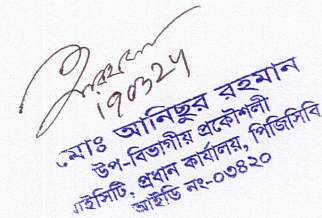 ১৭০৩২৫
মোঃ আনিছুর রহমান
উপ-বিভাগীয় প্রকৌশলী
আইসিটি, প্রধান কার্যালয়, পিজিসিবি
আইডি নং-০৩৪২০